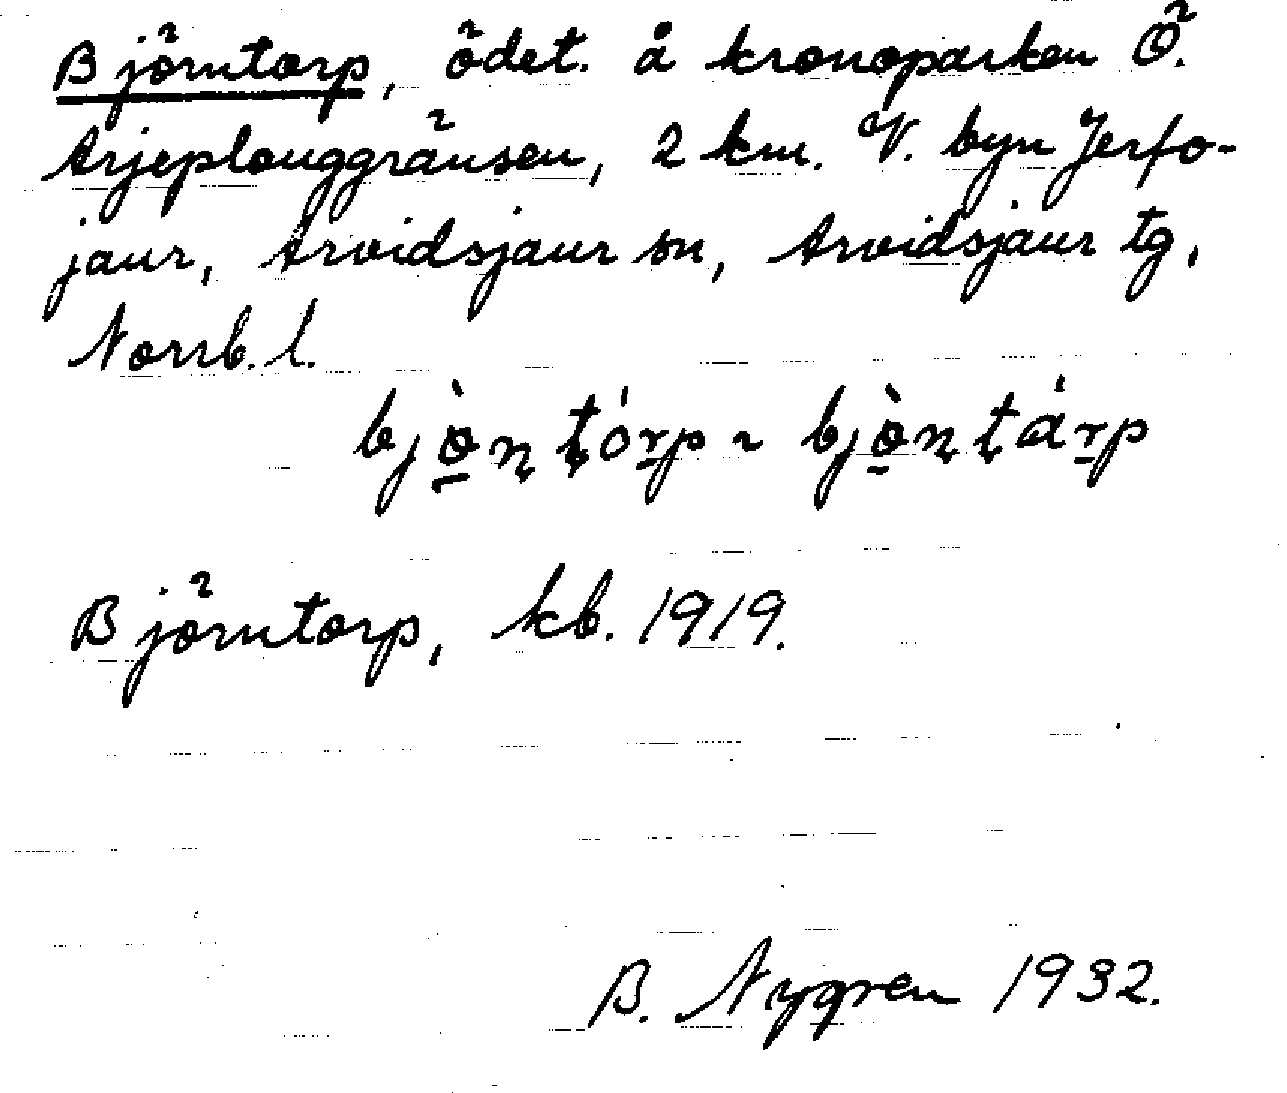 Björntorp, ödet. å kronoparken Ö.
Arjeplouggränsen, 2 km. V. byn Jerfo-
jaur, Arvidsjaur sn, Arvidsjaur tg,
Norrb. l.
bjò̠ṇṭór̠p ~ bjò̠ṇṭár̠p
Björntorp, kb. 1919.
B. Nygren 1932.